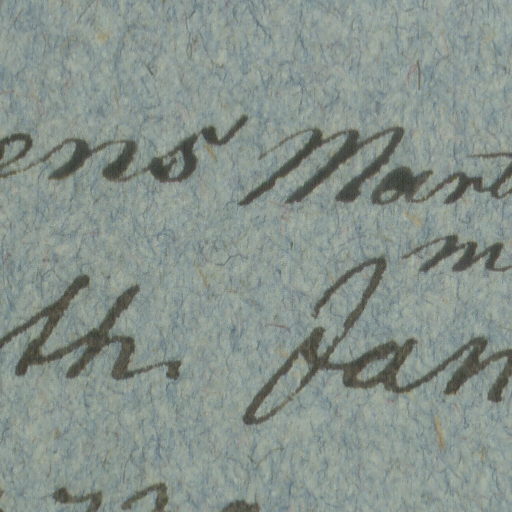 ens Mart
m
th. Jan